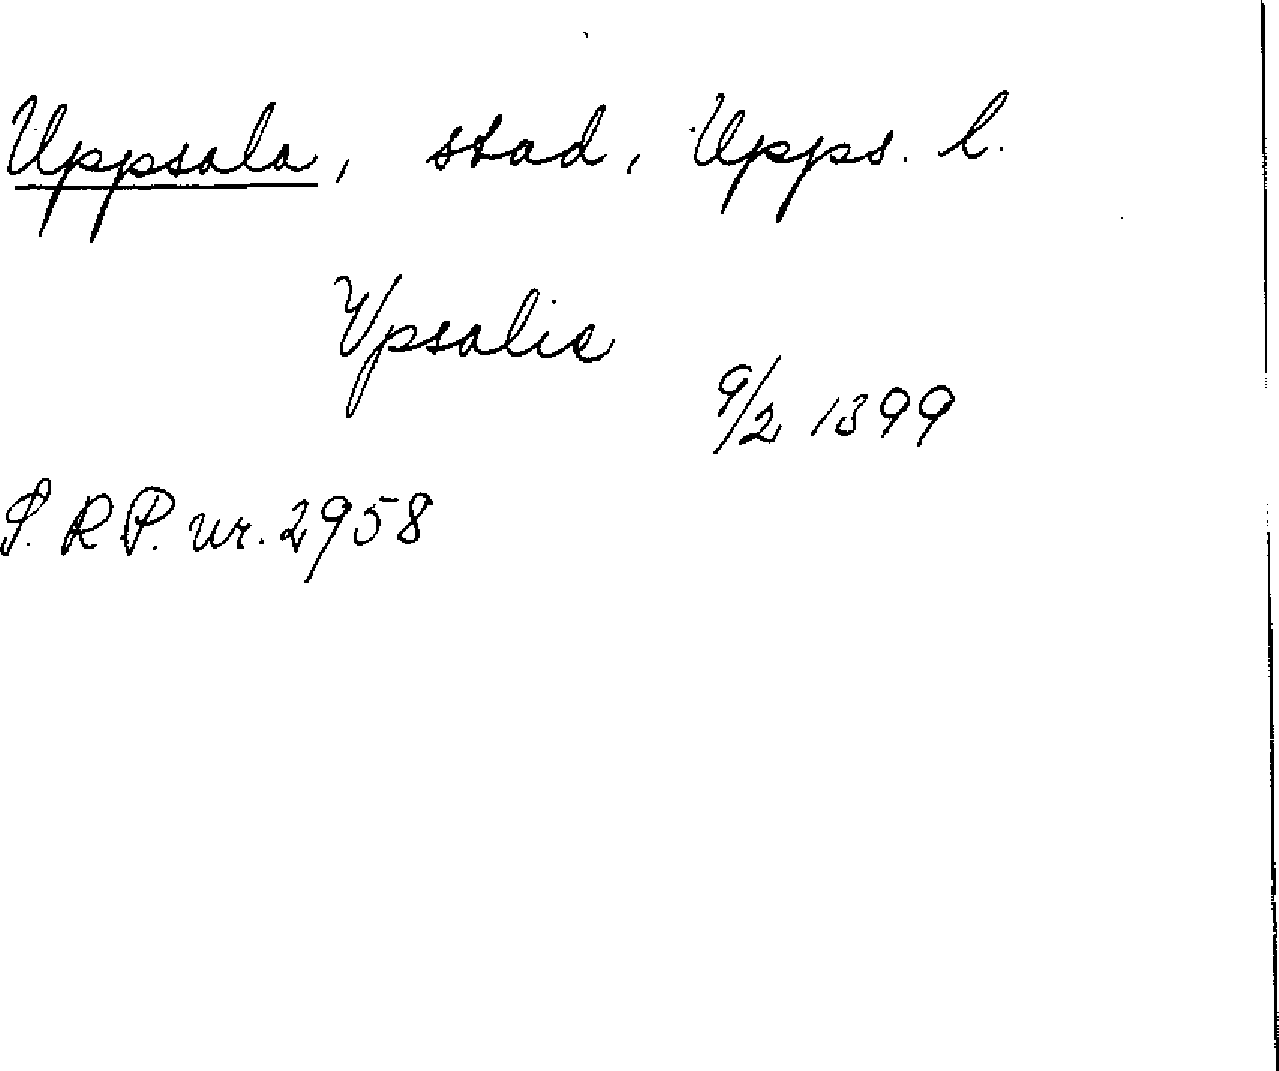 Uppsala, stad, Upps. l.
Vpsalie
9/2 1399
S. R P. nr. 2958